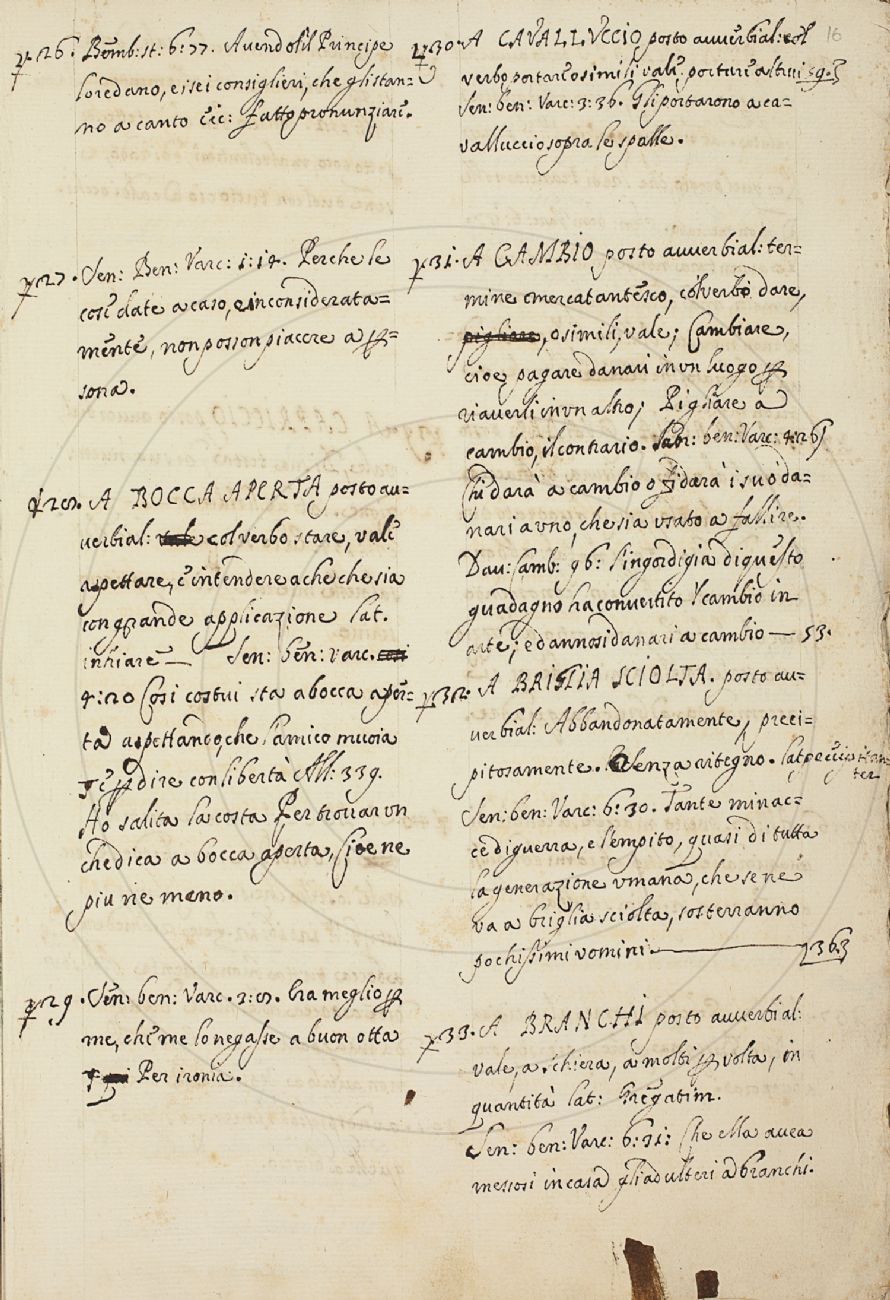 26. Bemb: st: 6: 77. Avendo il Principe
Loredano, e i sei consiglieri, che gli stan=
no a canto etc: fatto pronunziare.
27. Sen: Ben: Varc: 1: 14. Perche le
cose date a caso, e inconsiderata=
mente, non posson piacere a p=
sona.
28. A BOCCA APERTA posto au=
verbial: col verbo stare, vale
aspettare, e intendere a che che sia
con grande applicazione lat.
inhiare — Sen: ben: varc.
4: 20 Cosi costui sta a bocca aper=
ta aspettando, che l'amico muoia
dire con libertà All: 339.
Ho salita la costa Per trovar un
che dica a bocca aperta, Cioe ne
piu ne meno.
29. Sen: ben: Varc. 2: 8. Era meglio p
me, che me lo negasse a buon otta
Per ironia.
16
30. A CAVALLUCCIO posto auverbial: col
verbo portare o simili vale: portare altrui 59.
Sen: ben: Varc: 3: 36. Gli portarono a ca=
valluccio sopra le spalle.
31. A CAMBIO posto auuerbial: ter=
mine mercatantesco, col verbo dare,
pigliare, o simili, vale; Cambiare,
cioe pagare danari in un luogo p
riaverli in un altro; Pigliare a
cambio, il contrario. Sen: ben: Varc: 4: 26
Chi darà a cambio o fidarà i suoi da=
nari a uno, che sia usato a fallire.
Dav: Camb: 96: l'ingordigia di questo
guadagno ha convertito il cambio in
arte; e dannosi danari a cambio — 53.
32. A BRIGLIA SCIOLTA. posto au=
verbial: Abbandonatamente, preci=
pitosamente. Senza ritegno. lat precipitan=
ter
Sen: ben: Varc: 6: 30. Tante minac=
ce di guerra, e l'empito, quasi di tutta
la generazione umana, che se ne
va a briglia sciolta, sosterranno
pochissimi uomini — 363
33. A BRANCHI posto auuerbial:
vale, a schiera, a molti p volta, in
quantità lat: Gregatim.
Sen: ben: Varc: 6: 31: Che ella avea
messosi in casa gli adulteri a branchi.